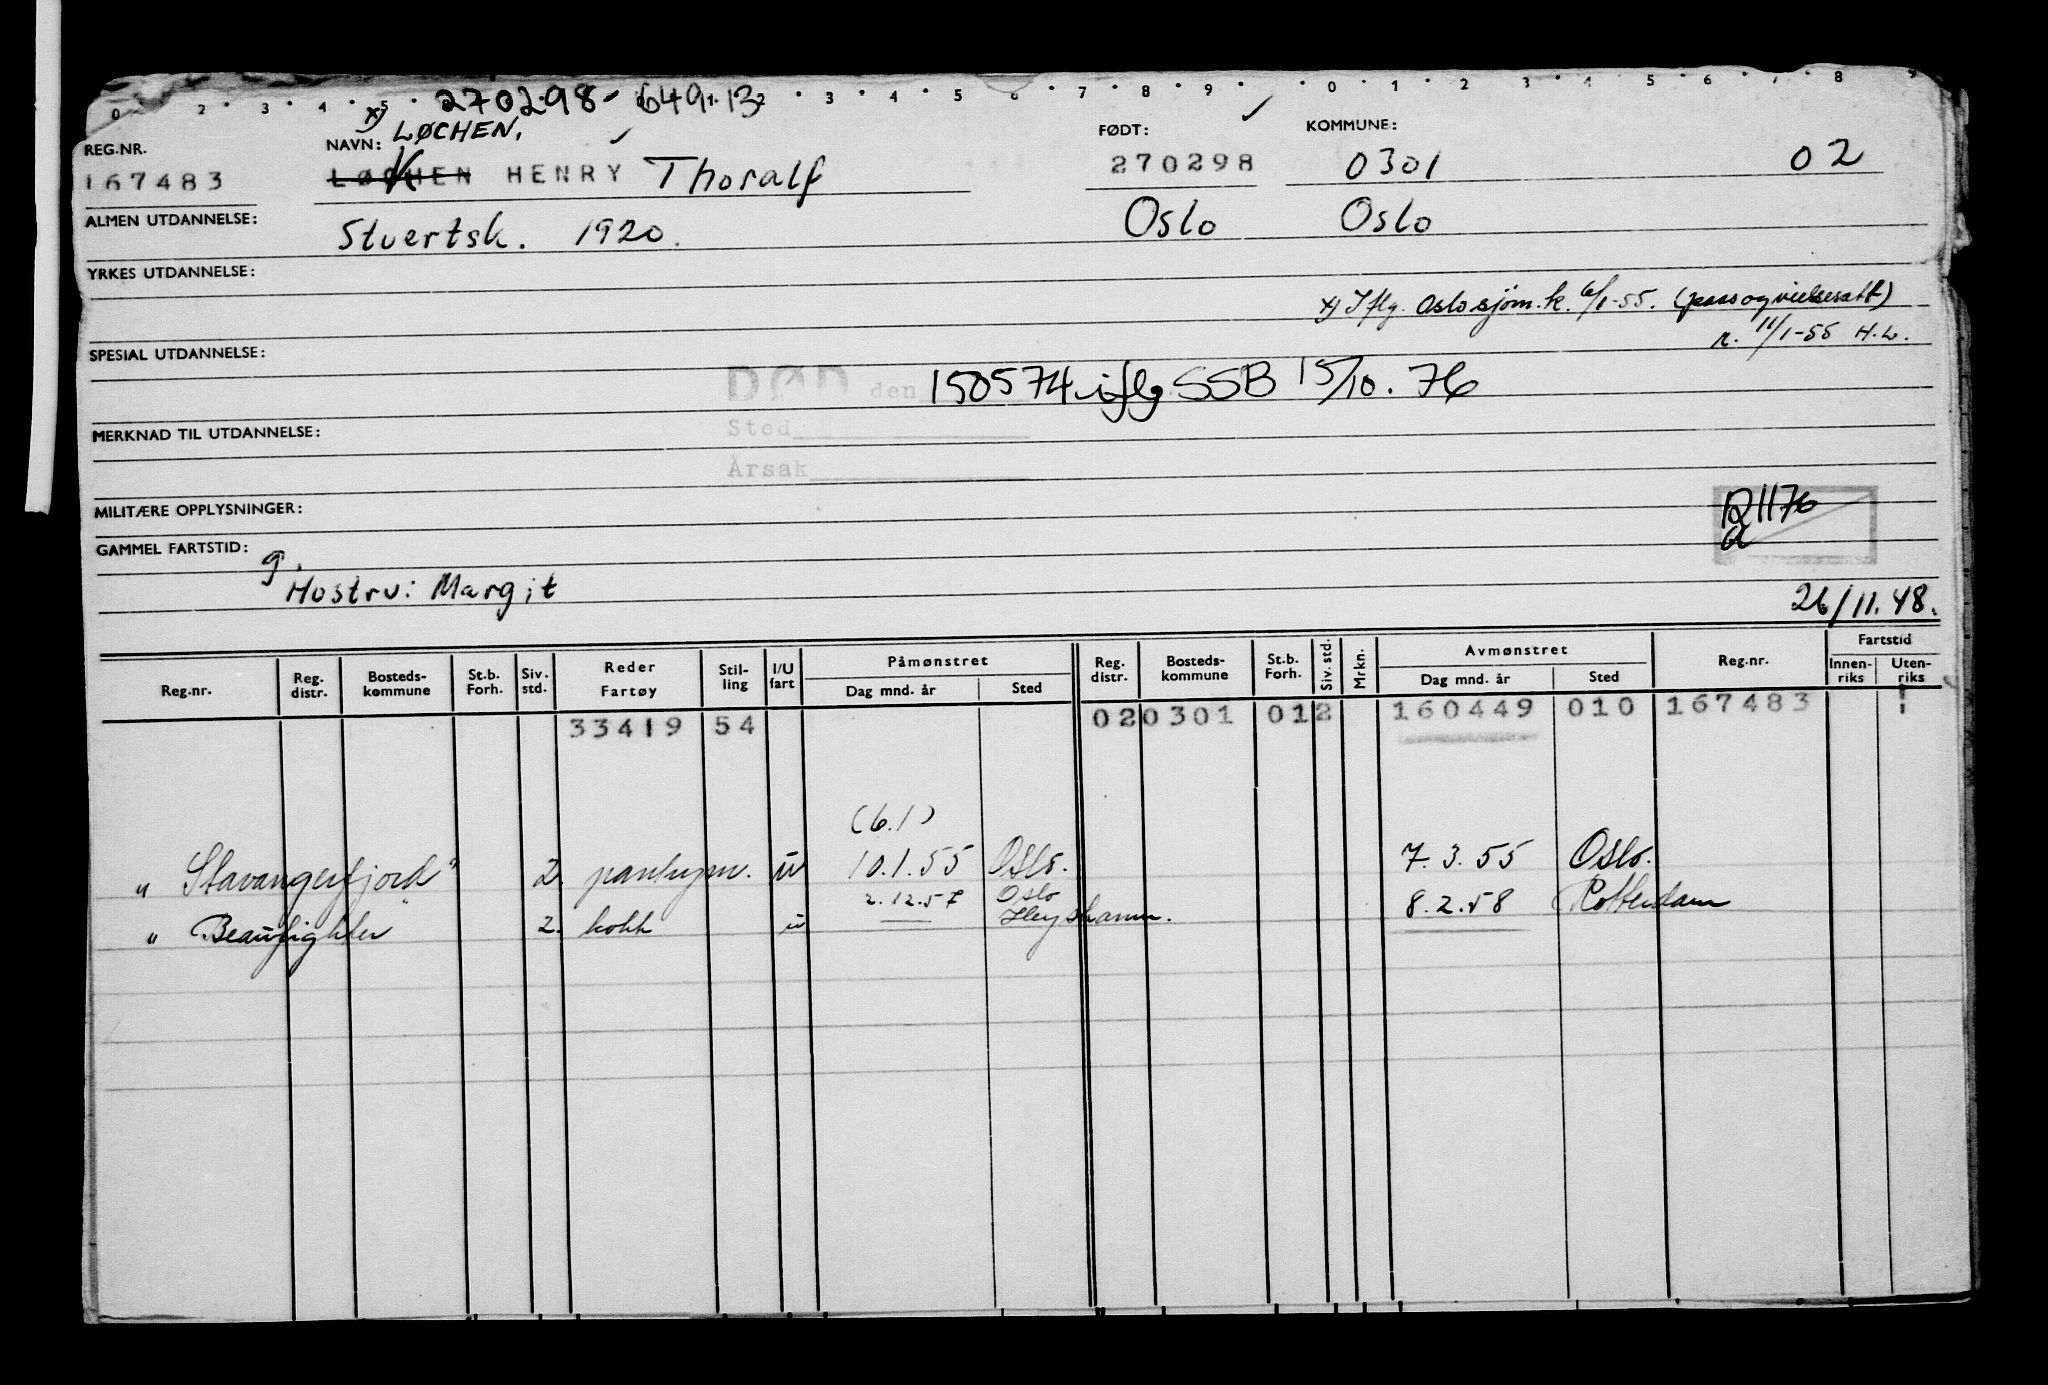 0 2 3 4 5 2 3 4 5 6 7 8 9 0 1 2 3 4 5 6 7 8 9
270298 - 649.13
x) LØCHEN.
REG.NR. NAVN: FØDT: KOMMUNE:
167483 LØCHEN HENRY Thoralf 270298 0301 02
ALMEN UTDANNELSE: Stuertsk. 1920. Oslo Oslo
YRKES UTDANNELSE:
x) Iflg. Oslo sjøm.k. 6/1-55. (pass og vielsesatt)
r. 11/1-55 H.L.
SPESIAL UTDANNELSE:
DØD den 150574 iflg SSB 15/10. 76
Sted
MERKNAD TIL UTDANNELSE:
Årsak
MILITÆRE OPPLYSNINGER: R1176
a
GAMMEL FARTSTID:
g.
Hustru: Margit 26/11.48.
Reg.nr. Reg. distr. Bosteds-kommune St.b. Forh. Siv. std. Reder Fartøy Stil-ling I/U fart Påmønstret Dag mnd. år Sted Reg. distr. Bosteds-kommune St.b. Forh. Siv. std. Mrkn. Avmønstret Dag mnd. år Sted Reg.nr. Fartstid Innen-riks Uten-riks
33419 54 020301 012 160449 010 167483
(6.1)
" Stavangerfjord" 2. pantrym. u 10.1.55 Oslo. 7.3.55 Oslo.
2.12.57 Oslo
" Beaufighter" 2. kokk u Heysham. 8.2.58 Rotterdam